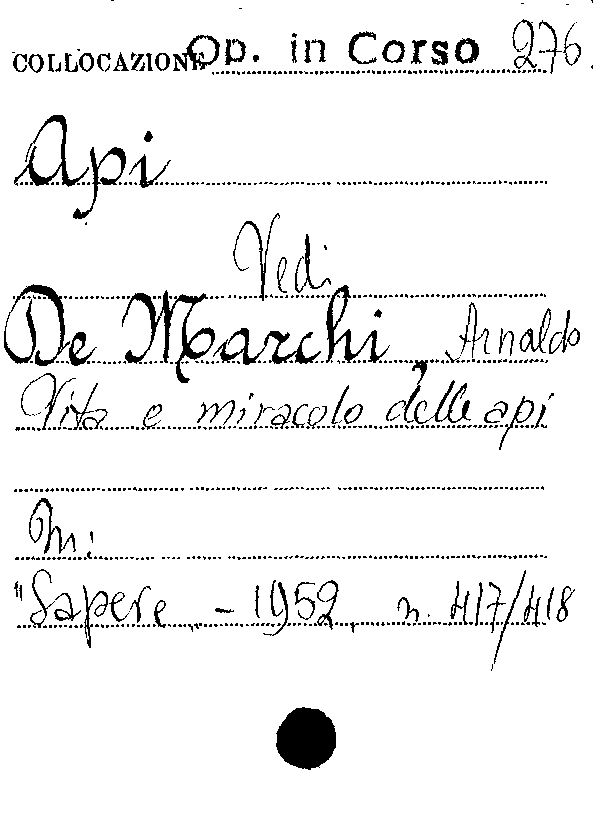 COLLOCAZIONE Op. in Corso 276.
Api
Vedi
De Marchi, Arnaldo
Vita e miracolo delle api
In:
"Sapere„ - 1952, n. 417/418